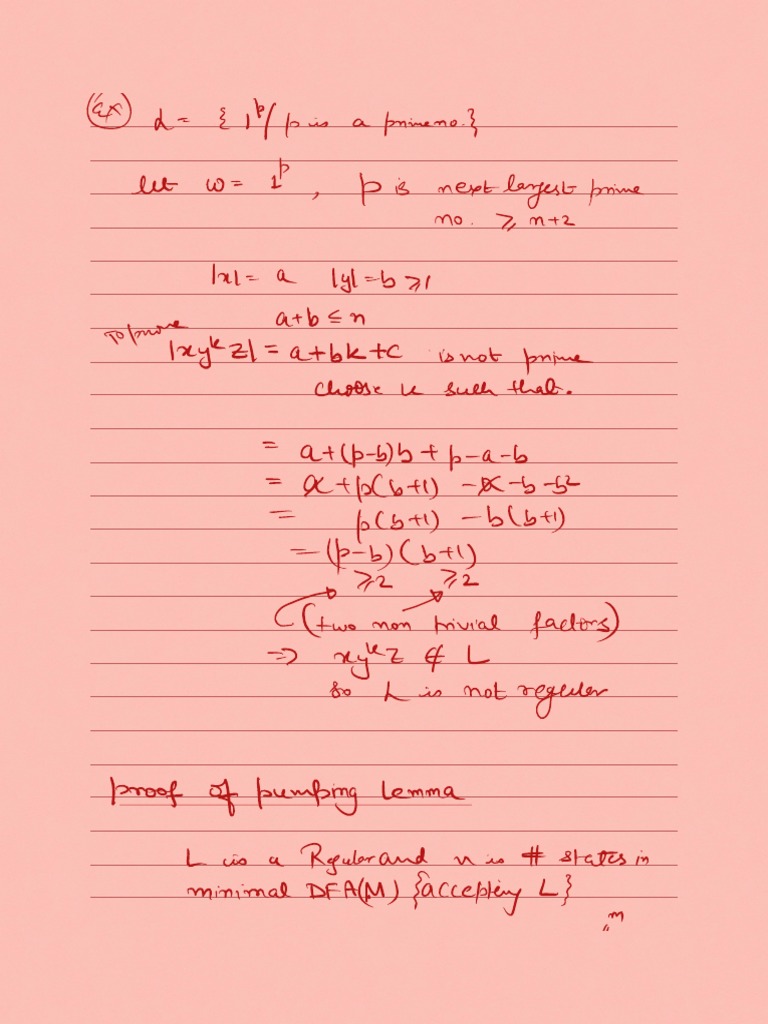 (ex) L = { 1^p / p is a prime no. }
let w = 1^p , p is next largest prime
no. ⩾ n+2
|x| = a |y| = b ⩾ 1
a+b ≤ n
To prove
|xy^k z| = a+bk+c is not prime
choose k such that.
= a+(p-b)b + p-a-b
= a+p(b+1) -a-b-b²
= p(b+1) -b(b+1)
= (p-b)(b+1)
⩾2 ⩾2
(two non trivial factors)
=> xy^k z ∉ L
so L is not regular
proof of pumping lemma
L is a Regular and n is # states in
minimal DFA(M) {accepting L}
"m